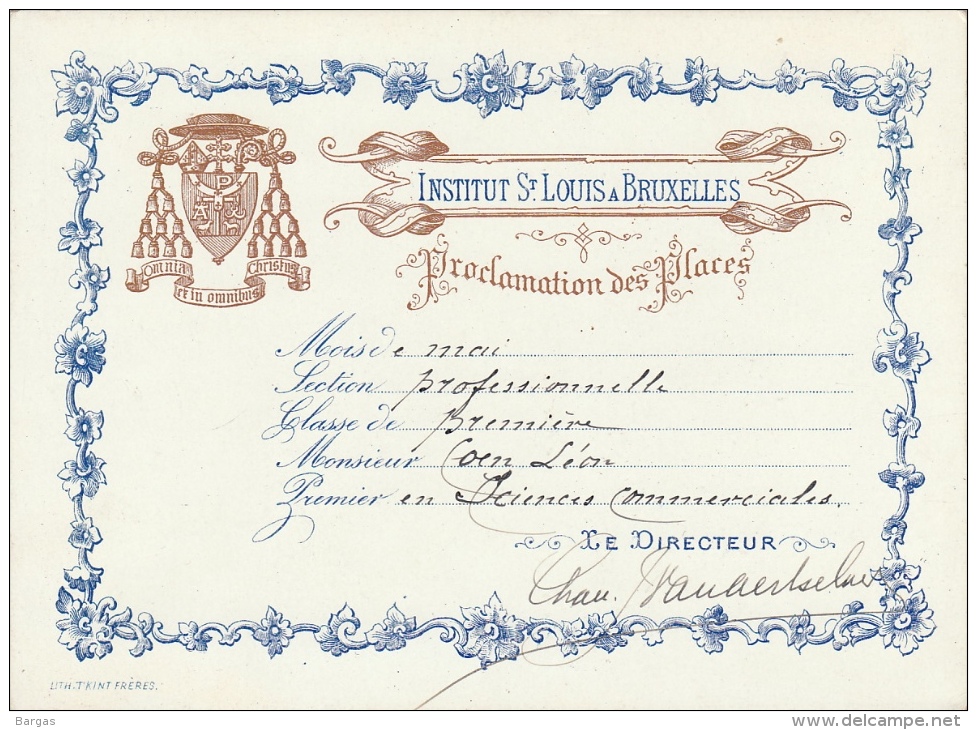 Omnia Christus
et in omnibus
INSTITUT ST. LOUIS A BRUXELLES
Proclamation des Places
Mois de mai
Section professionnelle
Classe de première
Monsieur Coen Léon
Premier en Sciences Commerciales.
LE DIRECTEUR
Chan.
LITH. T'KINT FRÈRES.
Bargas
www.delcampe.net